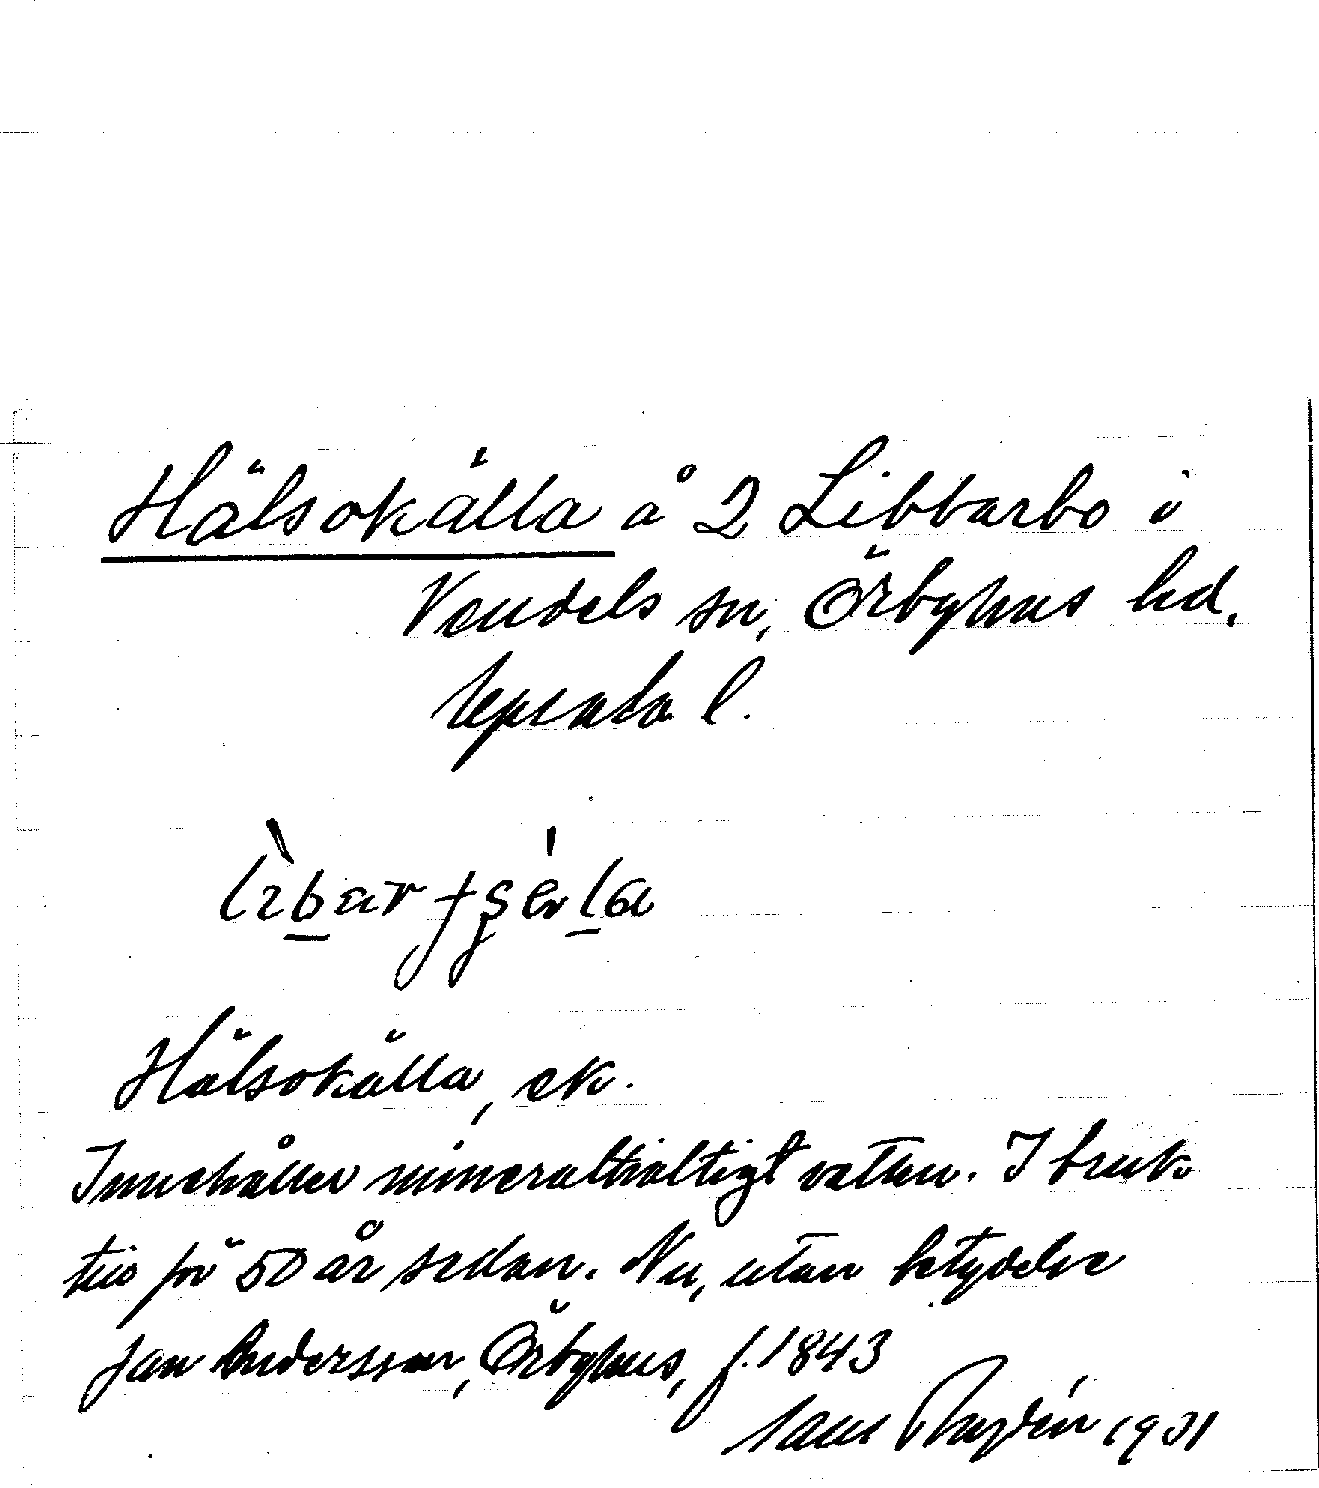 Hälsokälla å 2 Libbarbo i
Vendels sn, Örbyhus hd.
Uppsala l.
Hälsokälla, ek.
Innehåller mineralhaltigt vatten. I bruk
till för 50 år sedan. Nu, utan betydelse
Jan Andersson, Örbyhus, f. 1843
1931